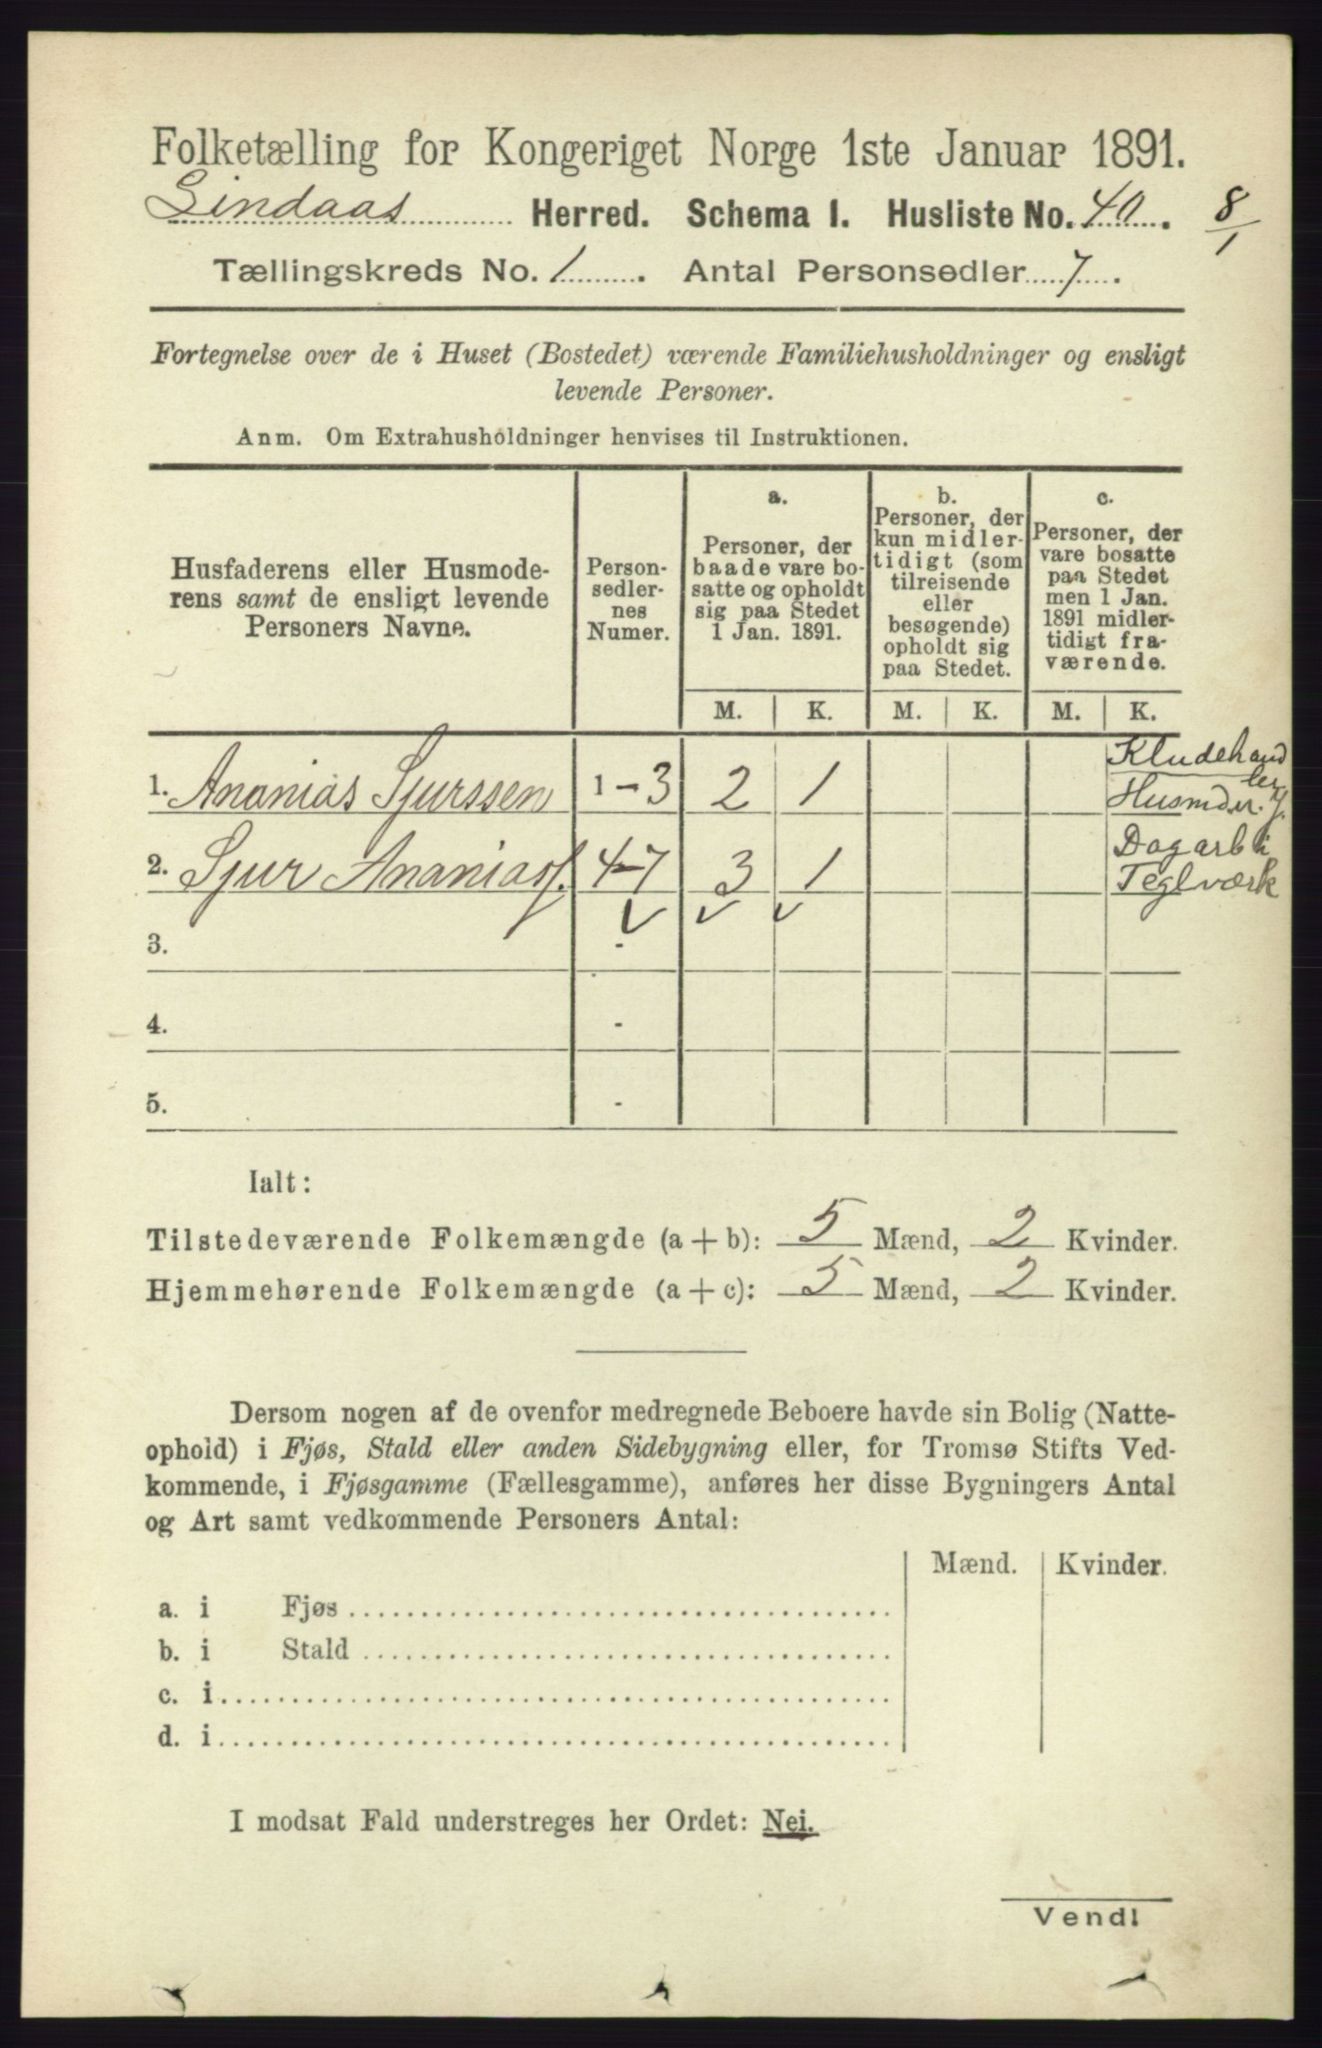 Folketælling for Kongeriget Norge 1ste Januar 1891.
Lindaas Herred. Schema I. Husliste No. 40. 8/1
Tællingskreds No. 1. Antal Personsedler 7.
Fortegnelse over de i Huset (Bostedet) værende Familiehusholdninger og ensligt
levende Personer.
Anm. Om Extrahusholdninger henvises til Instruktionen.
Husfaderens eller Husmode-
rens samt de ensligt levende
Personers Navne.
Person-
sedler-
nes
Numer.
a.
Personer, der
baade vare bo-
satte og opholdt
sig paa Stedet
1 Jan. 1891.
b.
Personer, der
kun midler-
tidigt (som
tilreisende
eller
besøgende)
opholdt sig
paa Stedet.
c.
Personer, der
vare bosatte
paa Stedet
men 1 Jan.
1891 midler-
tidigt fra-
værende.
M. K. M. K. M. K.
Kludehand
ler
1. Ananias Sjurssen 1-3 2 1 Husmdr.
Dagarb i
2. Sjur Ananiasf. 4-7 3 1 Teglværk
3. -
4. -
5. -
Ialt:
Tilstedeværende Folkemængde (a + b): 5 Mænd, 2 Kvinder.
Hjemmehørende Folkemængde (a + c): 5 Mænd, 2 Kvinder.
Dersom nogen af de ovenfor medregnede Beboere havde sin Bolig (Natte-
ophold) i Fjøs, Stald eller anden Sidebygning eller, for Tromsø Stifts Ved-
kommende, i Fjøsgamme (Fællesgamme), anføres her disse Bygningers Antal
og Art samt vedkommende Personers Antal:
Mænd. Kvinder.
a. i Fjøs
b. i Stald
c. i
d. i
I modsat Fald understreges her Ordet: Nei.
Vend!